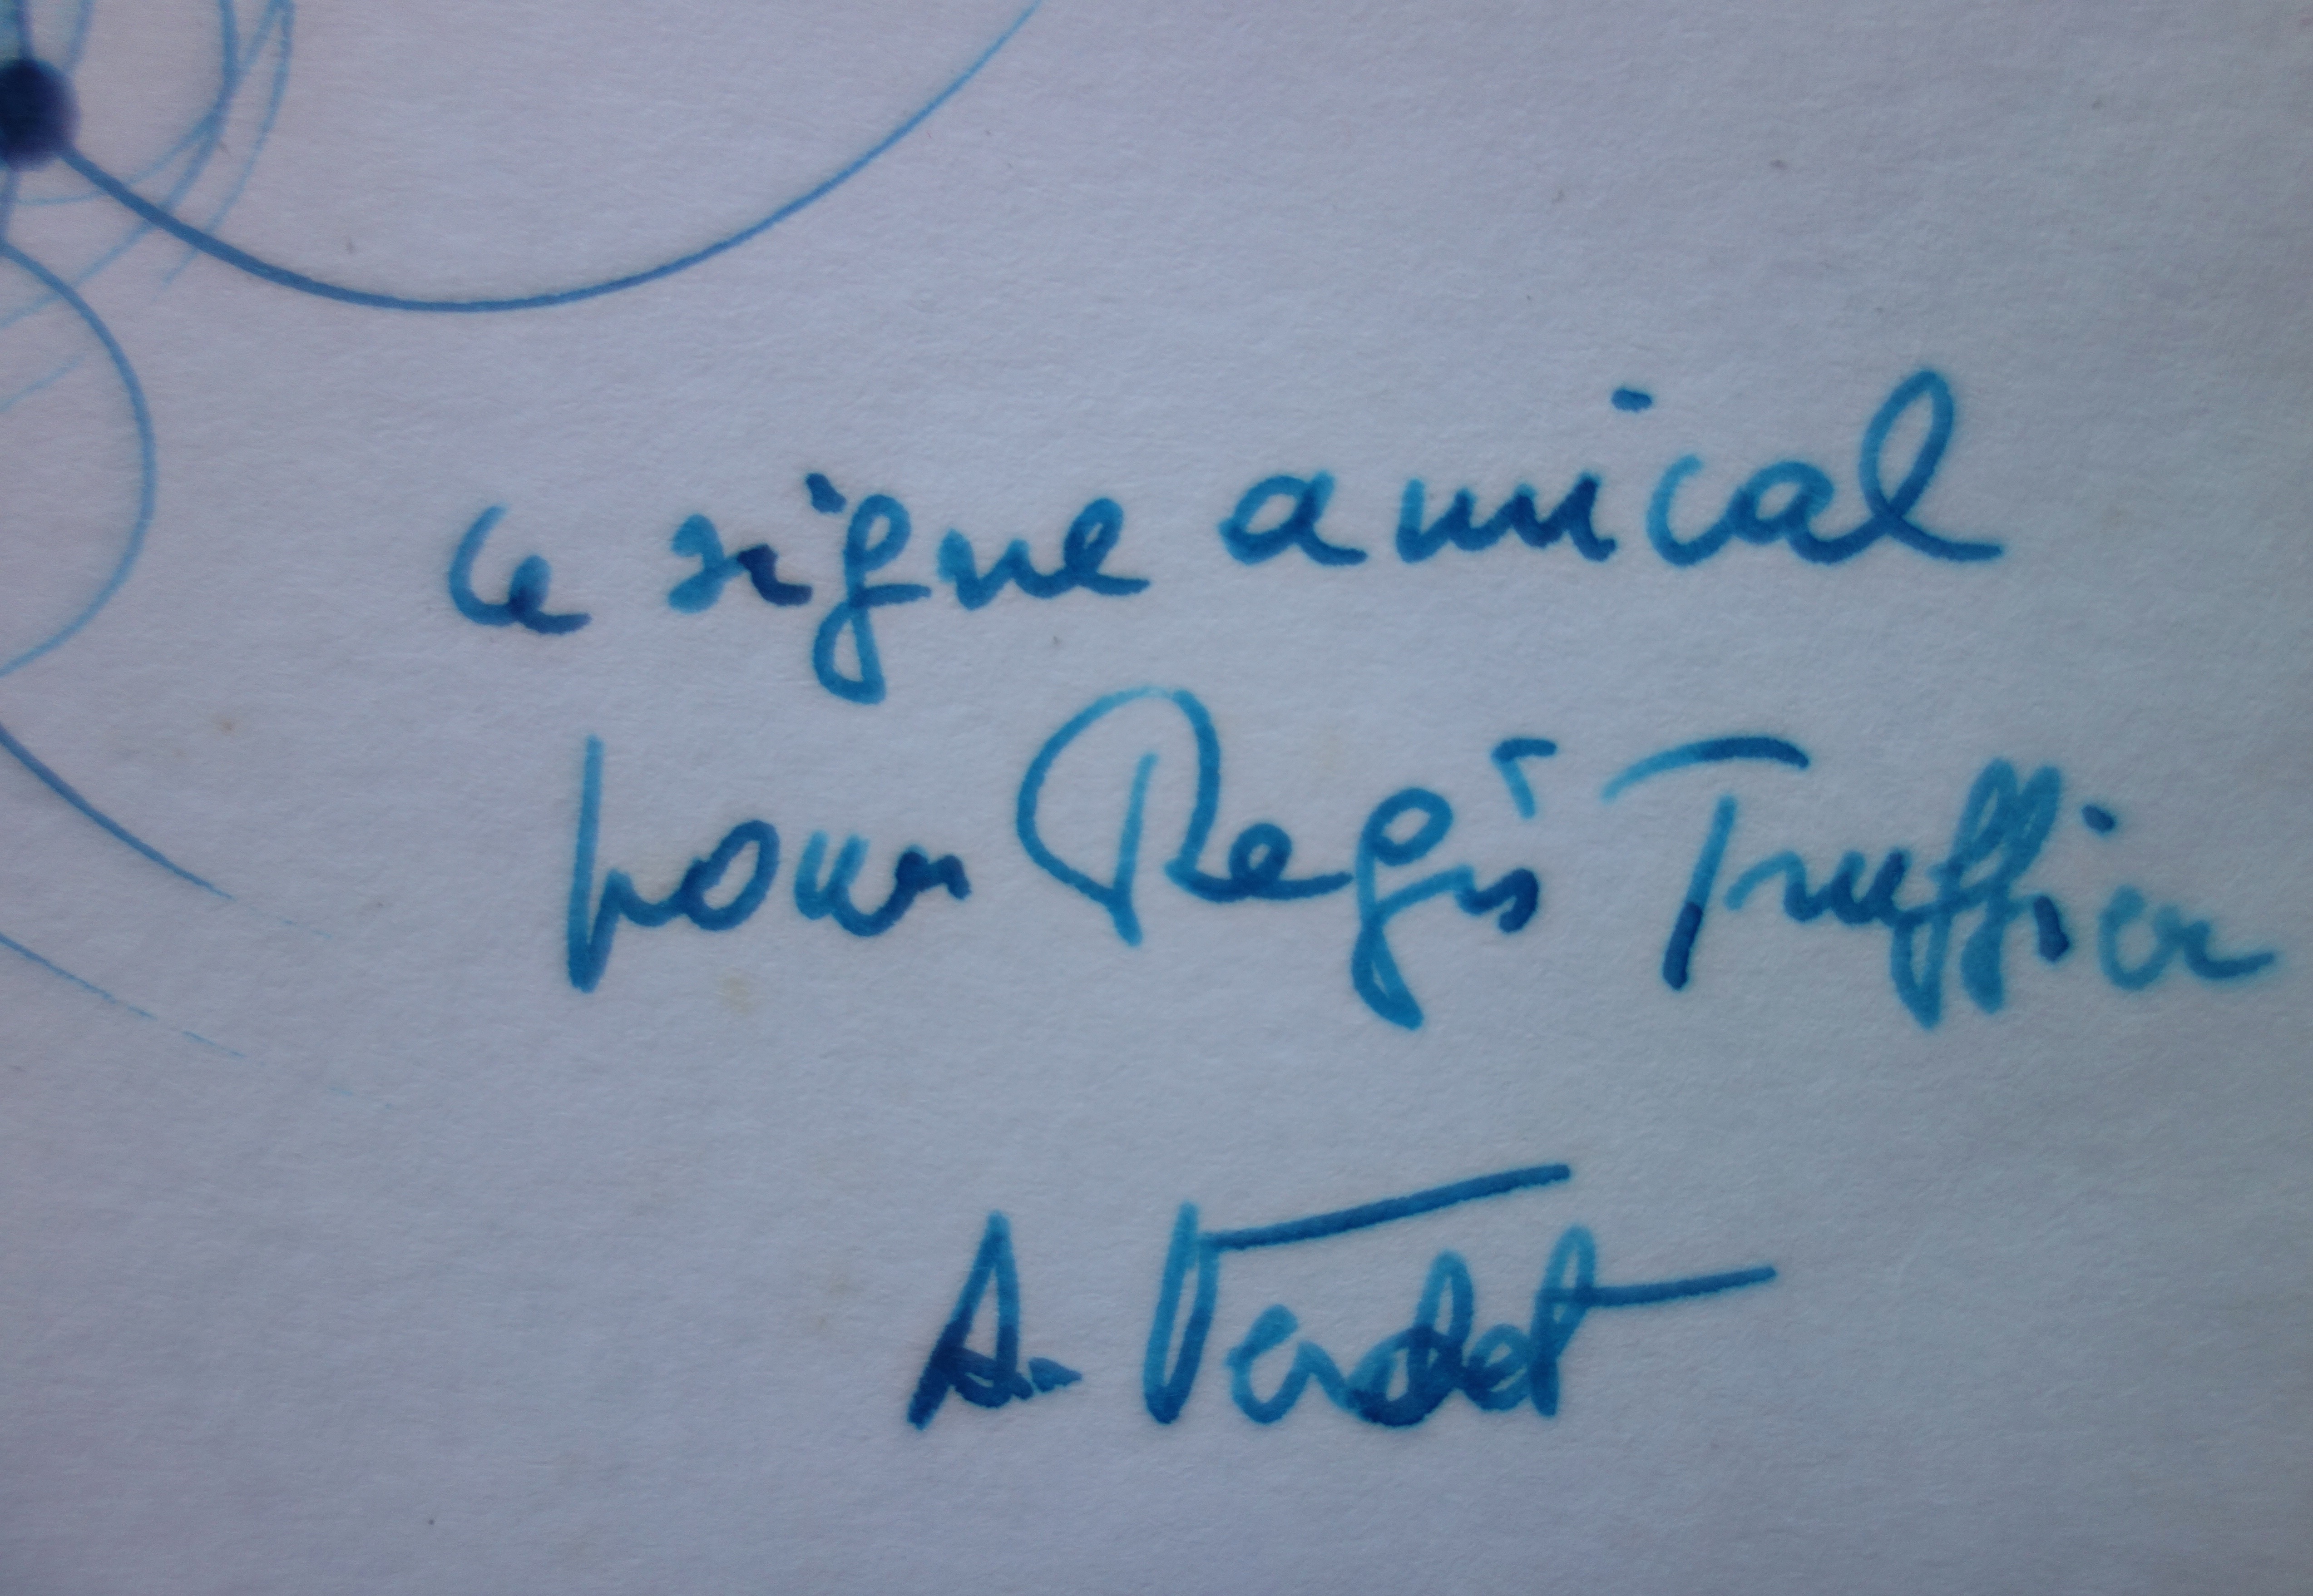 ce signe amical
pour Regis Truffier
A. Verdet